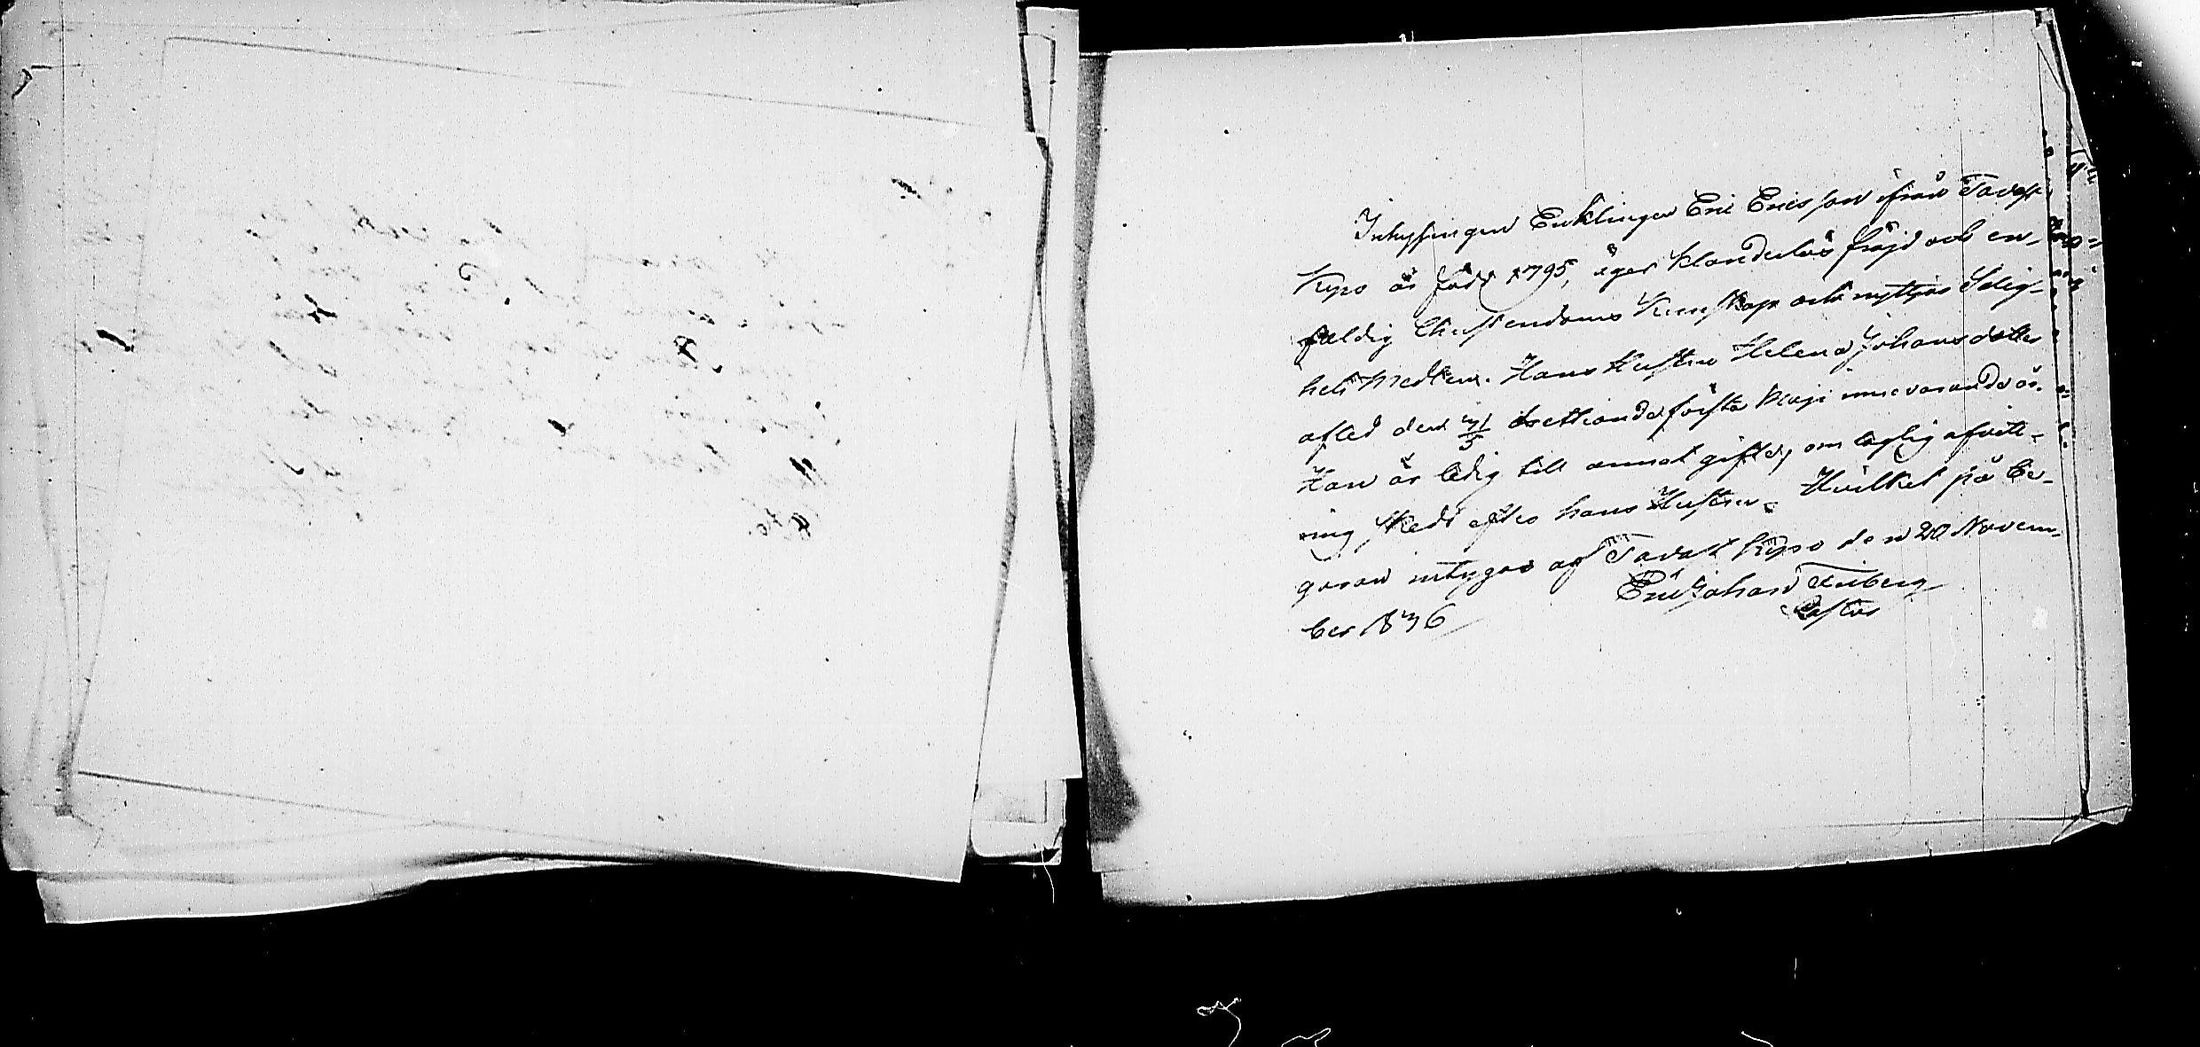 Inhysingen Enklingen Eric Ericsson ifrån Tavast
Kyro är född 1795, äger klanderlös fräjd och en-
faldig Christendoms Kunskap och nyttjar Salig-
hets Medlen. Hans Hustru Helena Johansdotter
afled den 31/5 trettionde första Maji innevarande år.
Han är ledig till annat gifte, om laglig afvitt-
ring skedt efter hans Hustru. Hvilket på be-
gäran intygas af Tavast Kyro den 20 Novem-
ber 1836
Eric Johan
Pastor